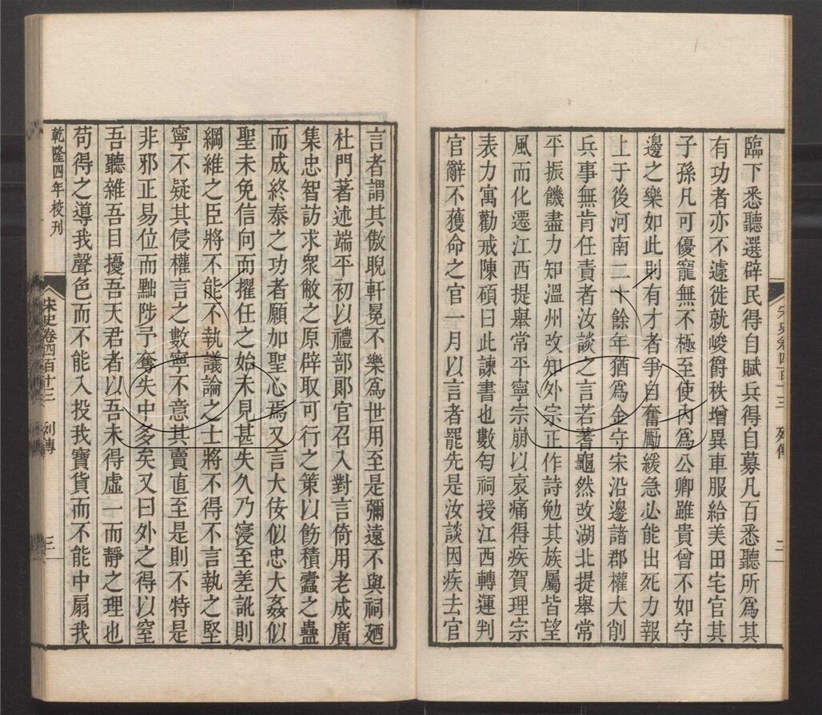 臨下悉聽選辟民得自賦兵得自募凡百悉聽所爲其
有功者亦不遽徙就峻爵秩增異車服給美田宅官其
子孫凡可優寵無不極至使內爲公卿雖貴曾不如守
邊之樂如此則有才者爭自奮勵緩急必能出死力報
上于後河南二十餘年猶爲金守宋沿邊諸郡權大削
兵事無肯任責者汝談之言若蓍龜然改湖北提舉常
平振饑盡力知溫州改知外宗正作詩勉其族屬皆望
風而化遷江西提舉常平寧宗崩以哀痛得疾賀理宗
表力寓勸戒陳碩曰此諫書也數匄祠授江西轉運判
官辭不獲命之官一月以言者罷先是汝談因疾去官
宋史卷四百十三 列傳 二
言者謂其傲睨軒冕不樂爲世用至是彌遠不與祠廼
杜門著述端平初以禮部郎官召入對言倚用老成廣
集忠智訪求衆敝之原辟取可行之策以飭積蠹之蠱
而成終泰之功者願加聖心焉又言大佞似忠大姦似
聖未免信向而擢任之始未見甚失久乃寖至差訛則
綱維之臣將不能不執議論之士將不得不言執之堅
寧不疑其侵權言之數寧不意其賣直至是則不特是
非邪正易位而黜陟予奪失中多矣又曰外之得以窒
吾聽雜吾目擾吾天君者以吾未得虛一而靜之理也
苟得之導我聲色而不能入投我寶貨而不能中扇我
乾隆四年校刊
宋史卷四百十三 列傳 三